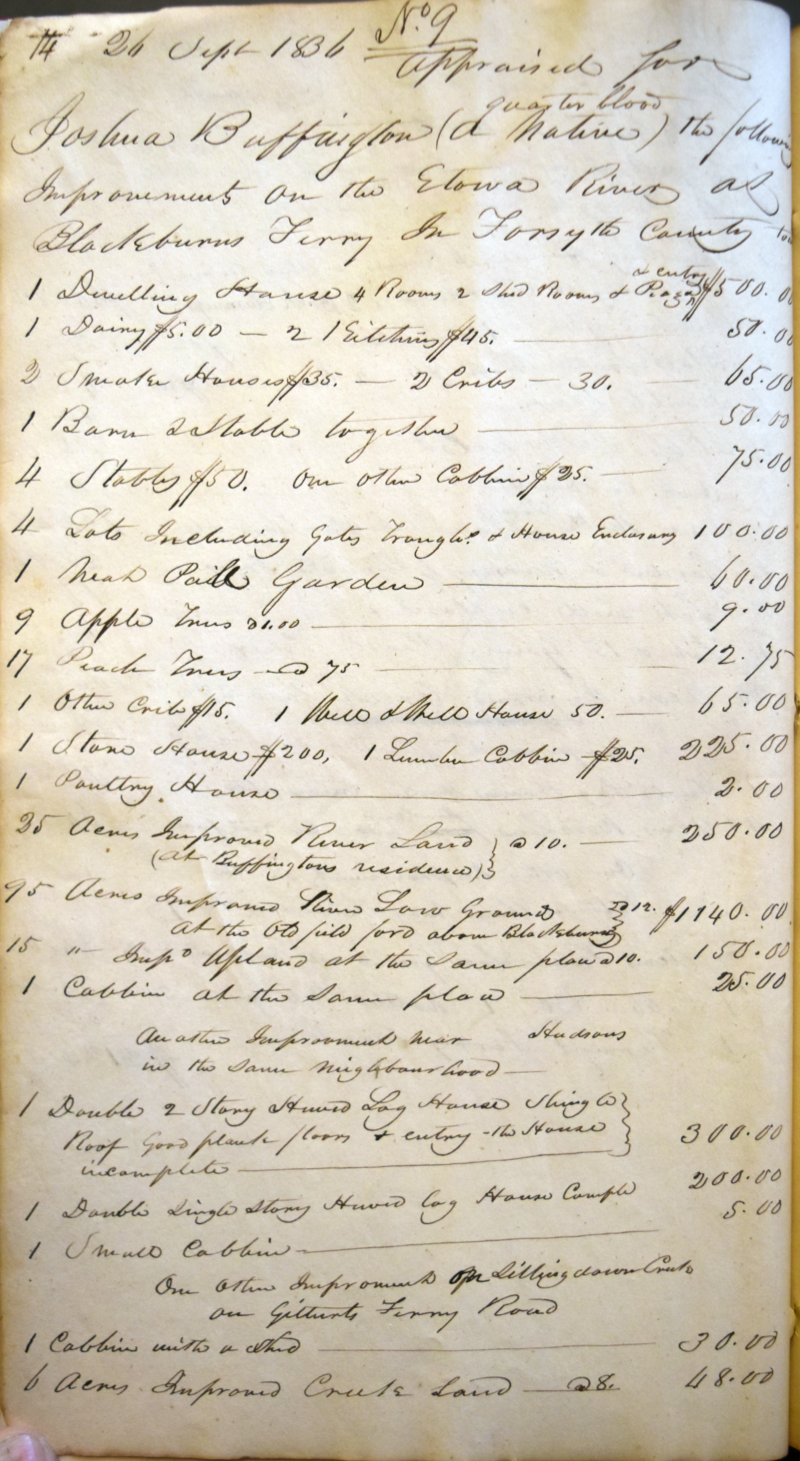 74 26 Sept 1836 No. 9
Appraised for
quarter blood
Joshua Buffington (a Native) the following
Improvements on the Etowa River at
Blackburns Ferry In Forsyth County
& entry
1 Dwelling House 4 Rooms 2 Shed Rooms & Piaza $500.00
1 Dairy $5.00 — 2 Kitchins $45. — 50.00
2 Smoke Houses $35. — 2 Cribs — 30. — 65.00
1 Barn & Stable together — 50.00
4 Stables $50. One other Cabbin $25. — 75.00
4 Lots Including Gates Troughs & House Enclosures 100.00
1 Neat Pail Garden — 60.00
9 Apple Trees @ 1.00 — 9.00
17 Peach Trees — @ 75 — 12.75
1 Other Crib $15. 1 Well & Well House 50. — 65.00
1 Store House $200, 1 Lumber Cabbin $25. 225.00
1 Poultry House — 2.00
25 Acres Improved River Land } @ 10. — 250.00
(at Buffingtons residence)
95 Acres Improved River Low Ground } @ 12. $1140.00
At the Old field ford above Blackburns
15 " Impd Upland at the Same place @ 10. 150.00
1 Cabbin at the Same place — 25.00
Another Improvement near Hudsons
in the Same Neighbourhood —
1 Double 2 Story Hewed Log House Shingle
Roof Good plank floors & entry - the House } 300.00
incomplete —
1 Double Single Story Hewed log House Comple 200.00
1 Small Cabbin — 5.00
One Other Improvement on Sittingdown Creek
on Ferry Road
1 Cabbin with a Shed — 30.00
6 Acres Improved Creek Land — @ 8. 48.00